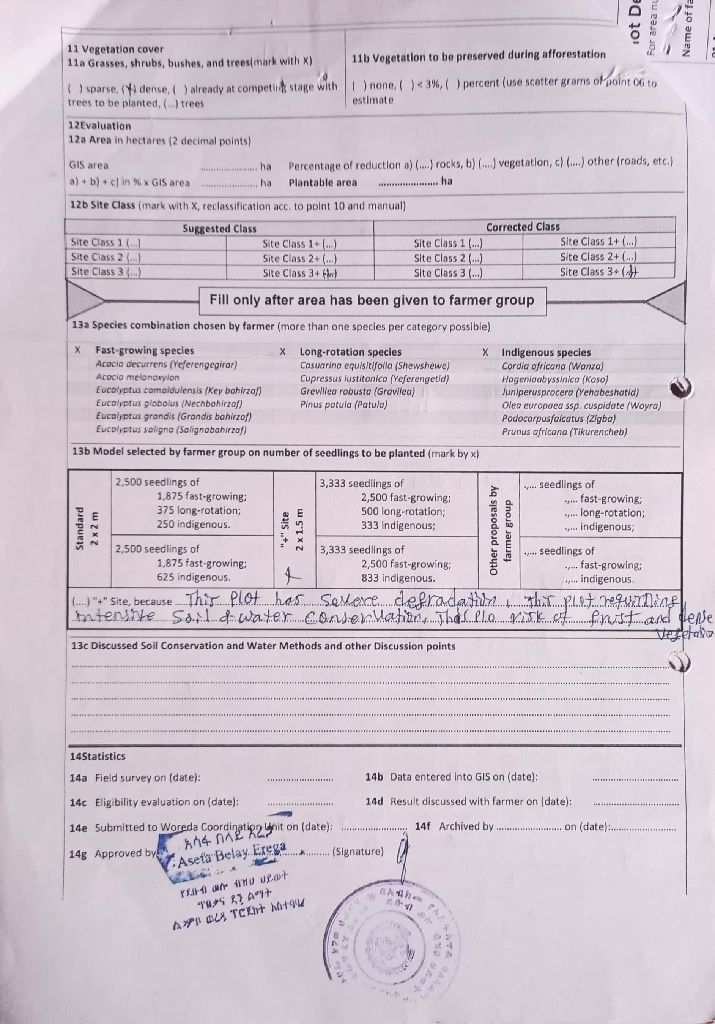 iot De
For area nu
Name of fa
11 Vegetation cover
11a Grasses, shrubs, bushes, and trees(mark with X)
( ) sparse, (X) dense, ( ) already at competing stage with
trees to be planted, (...) trees
11b Vegetation to be preserved during afforestation
( ) none, ( ) < 3%, ( ) percent (use scatter grams of point 06 to
estimate
12Evaluation
12a Area in hectares (2 decimal points)
GIS area .................. ha Percentage of reduction a) (....) rocks, b) (....) vegetation, c) (....) other (roads, etc.)
a) + b) + c) in % x GIS area .................. ha Plantable area .................. ha
12b Site Class (mark with X, reclassification acc. to point 10 and manual)
Suggested Class Corrected Class
Site Class 1 (...) Site Class 1+ (...) Site Class 1 (...) Site Class 1+ (...)
Site Class 2 (...) Site Class 2+ (...) Site Class 2 (...) Site Class 2+ (...)
Site Class 3 (...) Site Class 3+ Site Class 3 (...) Site Class 3+
Fill only after area has been given to farmer group
13a Species combination chosen by farmer (more than one species per category possible)
X Fast-growing species X Long-rotation species X Indigenous species
Acacia decurrens (Yeferengegirar) Casuarina equisitifolia (Shewshewe) Cordia africana (Wanza)
Acacia melonoxylon Cupressus lustitanica (Yeferengetid) Hageniaabyssinica (Koso)
Eucalyptus camaldulensis (Key bahirzaf) Grevillea robusta (Gravilea) Juniperusprocera (Yehabeshatid)
Eucalyptus globolus (Nechbahirzaf) Pinus patula (Patula) Olea europaea ssp. cuspidate (Woyra)
Eucalyptus grandis (Grandis bahirzaf) Podocarpusfalcatus (Zigba)
Eucalyptus saligna (Salignabahirzaf) Prunus africana (Tikurencheb)
13b Model selected by farmer group on number of seedlings to be planted (mark by x)
Standard
2 x 2 m
2,500 seedlings of
1,875 fast-growing;
375 long-rotation;
250 indigenous.
2,500 seedlings of
1,875 fast-growing;
625 indigenous.
"+" Site
2 x 1.5 m
3,333 seedlings of
2,500 fast-growing;
500 long-rotation;
333 indigenous;
3,333 seedlings of
2,500 fast-growing;
833 indigenous.
Other proposals by
farmer group
.,... seedlings of
.,... fast-growing;
.,... long-rotation;
.,... indigenous;
.,... seedlings of
.,... fast-growing;
.,... indigenous.
(....) "+" Site, because This Plot has Severe degradation, this plot
intensive Soil & water Conservation, risk of frust and dense
13c Discussed Soil Conservation and Water Methods and other Discussion points
14Statistics
14a Field survey on (date): .................. 14b Data entered into GIS on (date): ..................
14c Eligibility evaluation on (date): .................. 14d Result discussed with farmer on (date): ..................
14e Submitted to Woreda Coordination Unit on (date): .................. 14f Archived by .................. on (date):..................
14g Approved by (Signature)
አሰፋ በላይ
Asefa Belay Erega